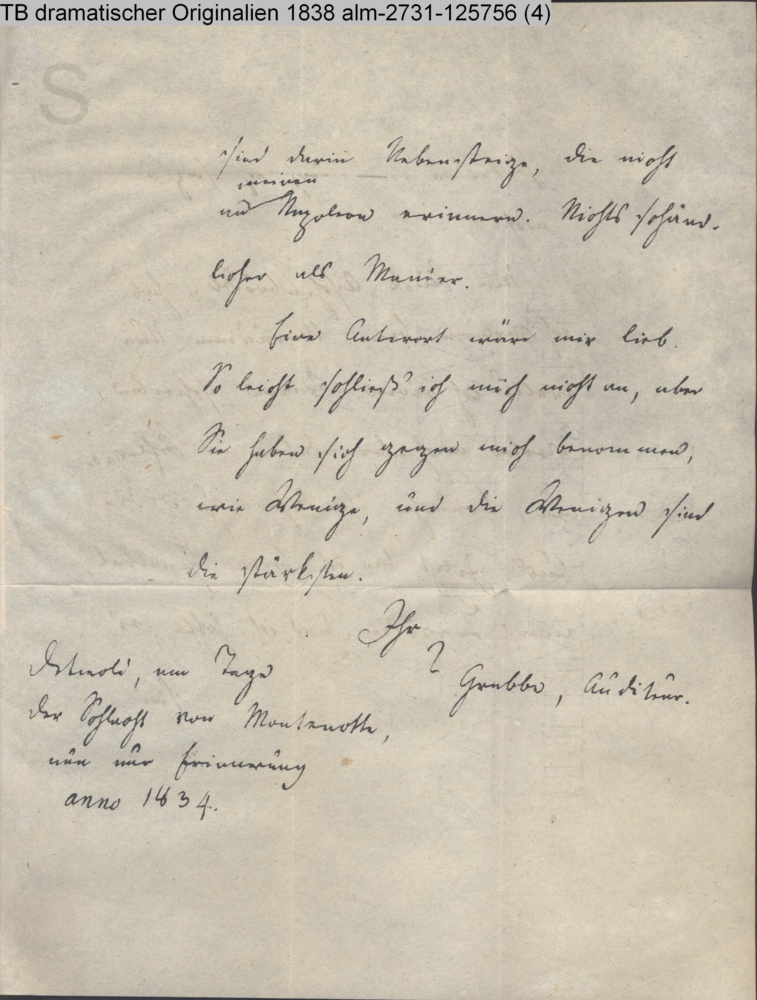 TB dramatischer Originalien 1838 alm-2731-125756 (4)
S
sind darin Nebensteige, die nicht
meinen
an Napoleon erinnern. Nichts schänd-
licher als Manier.
Eine Antwort wäre mir lieb.
So leicht schließ' ich mich nicht an, aber
Sie haben sich gegen mich benommen,
wie Wenige, und die Wenigen sind
die stärksten.
Ihr
Grabbe, Auditeur.
Detmold, am Tage
der Schlacht von Montenotte,
nun nur Erinnerung
anno 1834.